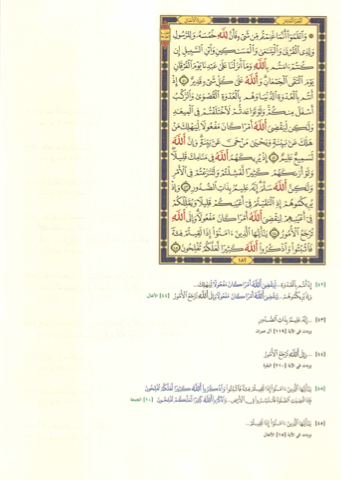 وَاعْلَمُوا أَنَّمَا غَنِمْتُم مِّن شَيْءٍ فَأَنَّ لِلَّهِ خُمُسَهُ وَلِلرَّسُولِ
وَلِذِي الْقُرْبَىٰ وَالْيَتَامَىٰ وَالْمَسَاكِينِ وَابْنِ السَّبِيلِ إِن
كُنتُمْ آمَنتُم بِاللَّهِ وَمَا أَنزَلْنَا عَلَىٰ عَبْدِنَا يَوْمَ الْفُرْقَانِ
يَوْمَ الْتَقَى الْجَمْعَانِ وَاللَّهُ عَلَىٰ كُلِّ شَيْءٍ قَدِيرٌ ٤١ إِذْ
أَنتُم بِالْعُدْوَةِ الدُّنْيَا وَهُم بِالْعُدْوَةِ الْقُصْوَىٰ وَالرَّكْبُ
أَسْفَلَ مِنكُمْ وَلَوْ تَوَاعَدتُّمْ لَاخْتَلَفْتُمْ فِي الْمِيعَادِ
وَلَٰكِن لِّيَقْضِيَ اللَّهُ أَمْرًا كَانَ مَفْعُولًا لِّيَهْلِكَ مَنْ
هَلَكَ عَن بَيِّنَةٍ وَيَحْيَىٰ مَنْ حَيَّ عَن بَيِّنَةٍ وَإِنَّ اللَّهَ
لَسَمِيعٌ عَلِيمٌ ٤٢ إِذْ يُرِيكَهُمُ اللَّهُ فِي مَنَامِكَ قَلِيلًا
وَلَوْ أَرَاكَهُمْ كَثِيرًا لَّفَشِلْتُمْ وَلَتَنَازَعْتُمْ فِي الْأَمْرِ
وَلَٰكِنَّ اللَّهَ سَلَّمَ إِنَّهُ عَلِيمٌ بِذَاتِ الصُّدُورِ ٤٣ وَإِذْ
يُرِيكُمُوهُمْ إِذِ الْتَقَيْتُمْ فِي أَعْيُنِكُمْ قَلِيلًا وَيُقَلِّلُكُمْ
فِي أَعْيُنِهِمْ لِيَقْضِيَ اللَّهُ أَمْرًا كَانَ مَفْعُولًا وَإِلَى اللَّهِ
تُرْجَعُ الْأُمُورُ ٤٤ يَا أَيُّهَا الَّذِينَ آمَنُوا إِذَا لَقِيتُمْ فِئَةً
فَاثْبُتُوا وَاذْكُرُوا اللَّهَ كَثِيرًا لَّعَلَّكُمْ تُفْلِحُونَ ٤٥
١٨٢
[٤٢] إِذْ أَنتُم بِالْعُدْوَةِ... لِّيَقْضِيَ اللَّهُ أَمْرًا كَانَ مَفْعُولًا لِّيَهْلِكَ...
وَإِذْ يُرِيكُمُوهُمْ... لِيَقْضِيَ اللَّهُ أَمْرًا كَانَ مَفْعُولًا وَإِلَى اللَّهِ تُرْجَعُ الْأُمُورُ [٤٤] الأنفال
[٤٣] ...إِنَّهُ عَلِيمٌ بِذَاتِ الصُّدُورِ
[٤٤] ...وَإِلَى اللَّهِ تُرْجَعُ الْأُمُورُ
وردت في الآية [٢١٠] البقرة
[٤٥] يَا أَيُّهَا الَّذِينَ آمَنُوا إِذَا لَقِيتُمْ فِئَةً فَاثْبُتُوا وَاذْكُرُوا اللَّهَ كَثِيرًا لَّعَلَّكُمْ تُفْلِحُونَ
فَإِذَا قُضِيَتِ الصَّلَاةُ فَانتَشِرُوا فِي الْأَرْضِ... وَاذْكُرُوا اللَّهَ كَثِيرًا لَّعَلَّكُمْ تُفْلِحُونَ [١٠] الجمعة
[٤٥] يَا أَيُّهَا الَّذِينَ آمَنُوا إِذَا لَقِيتُمْ...
وردت في الآية [١٥] الأنفال